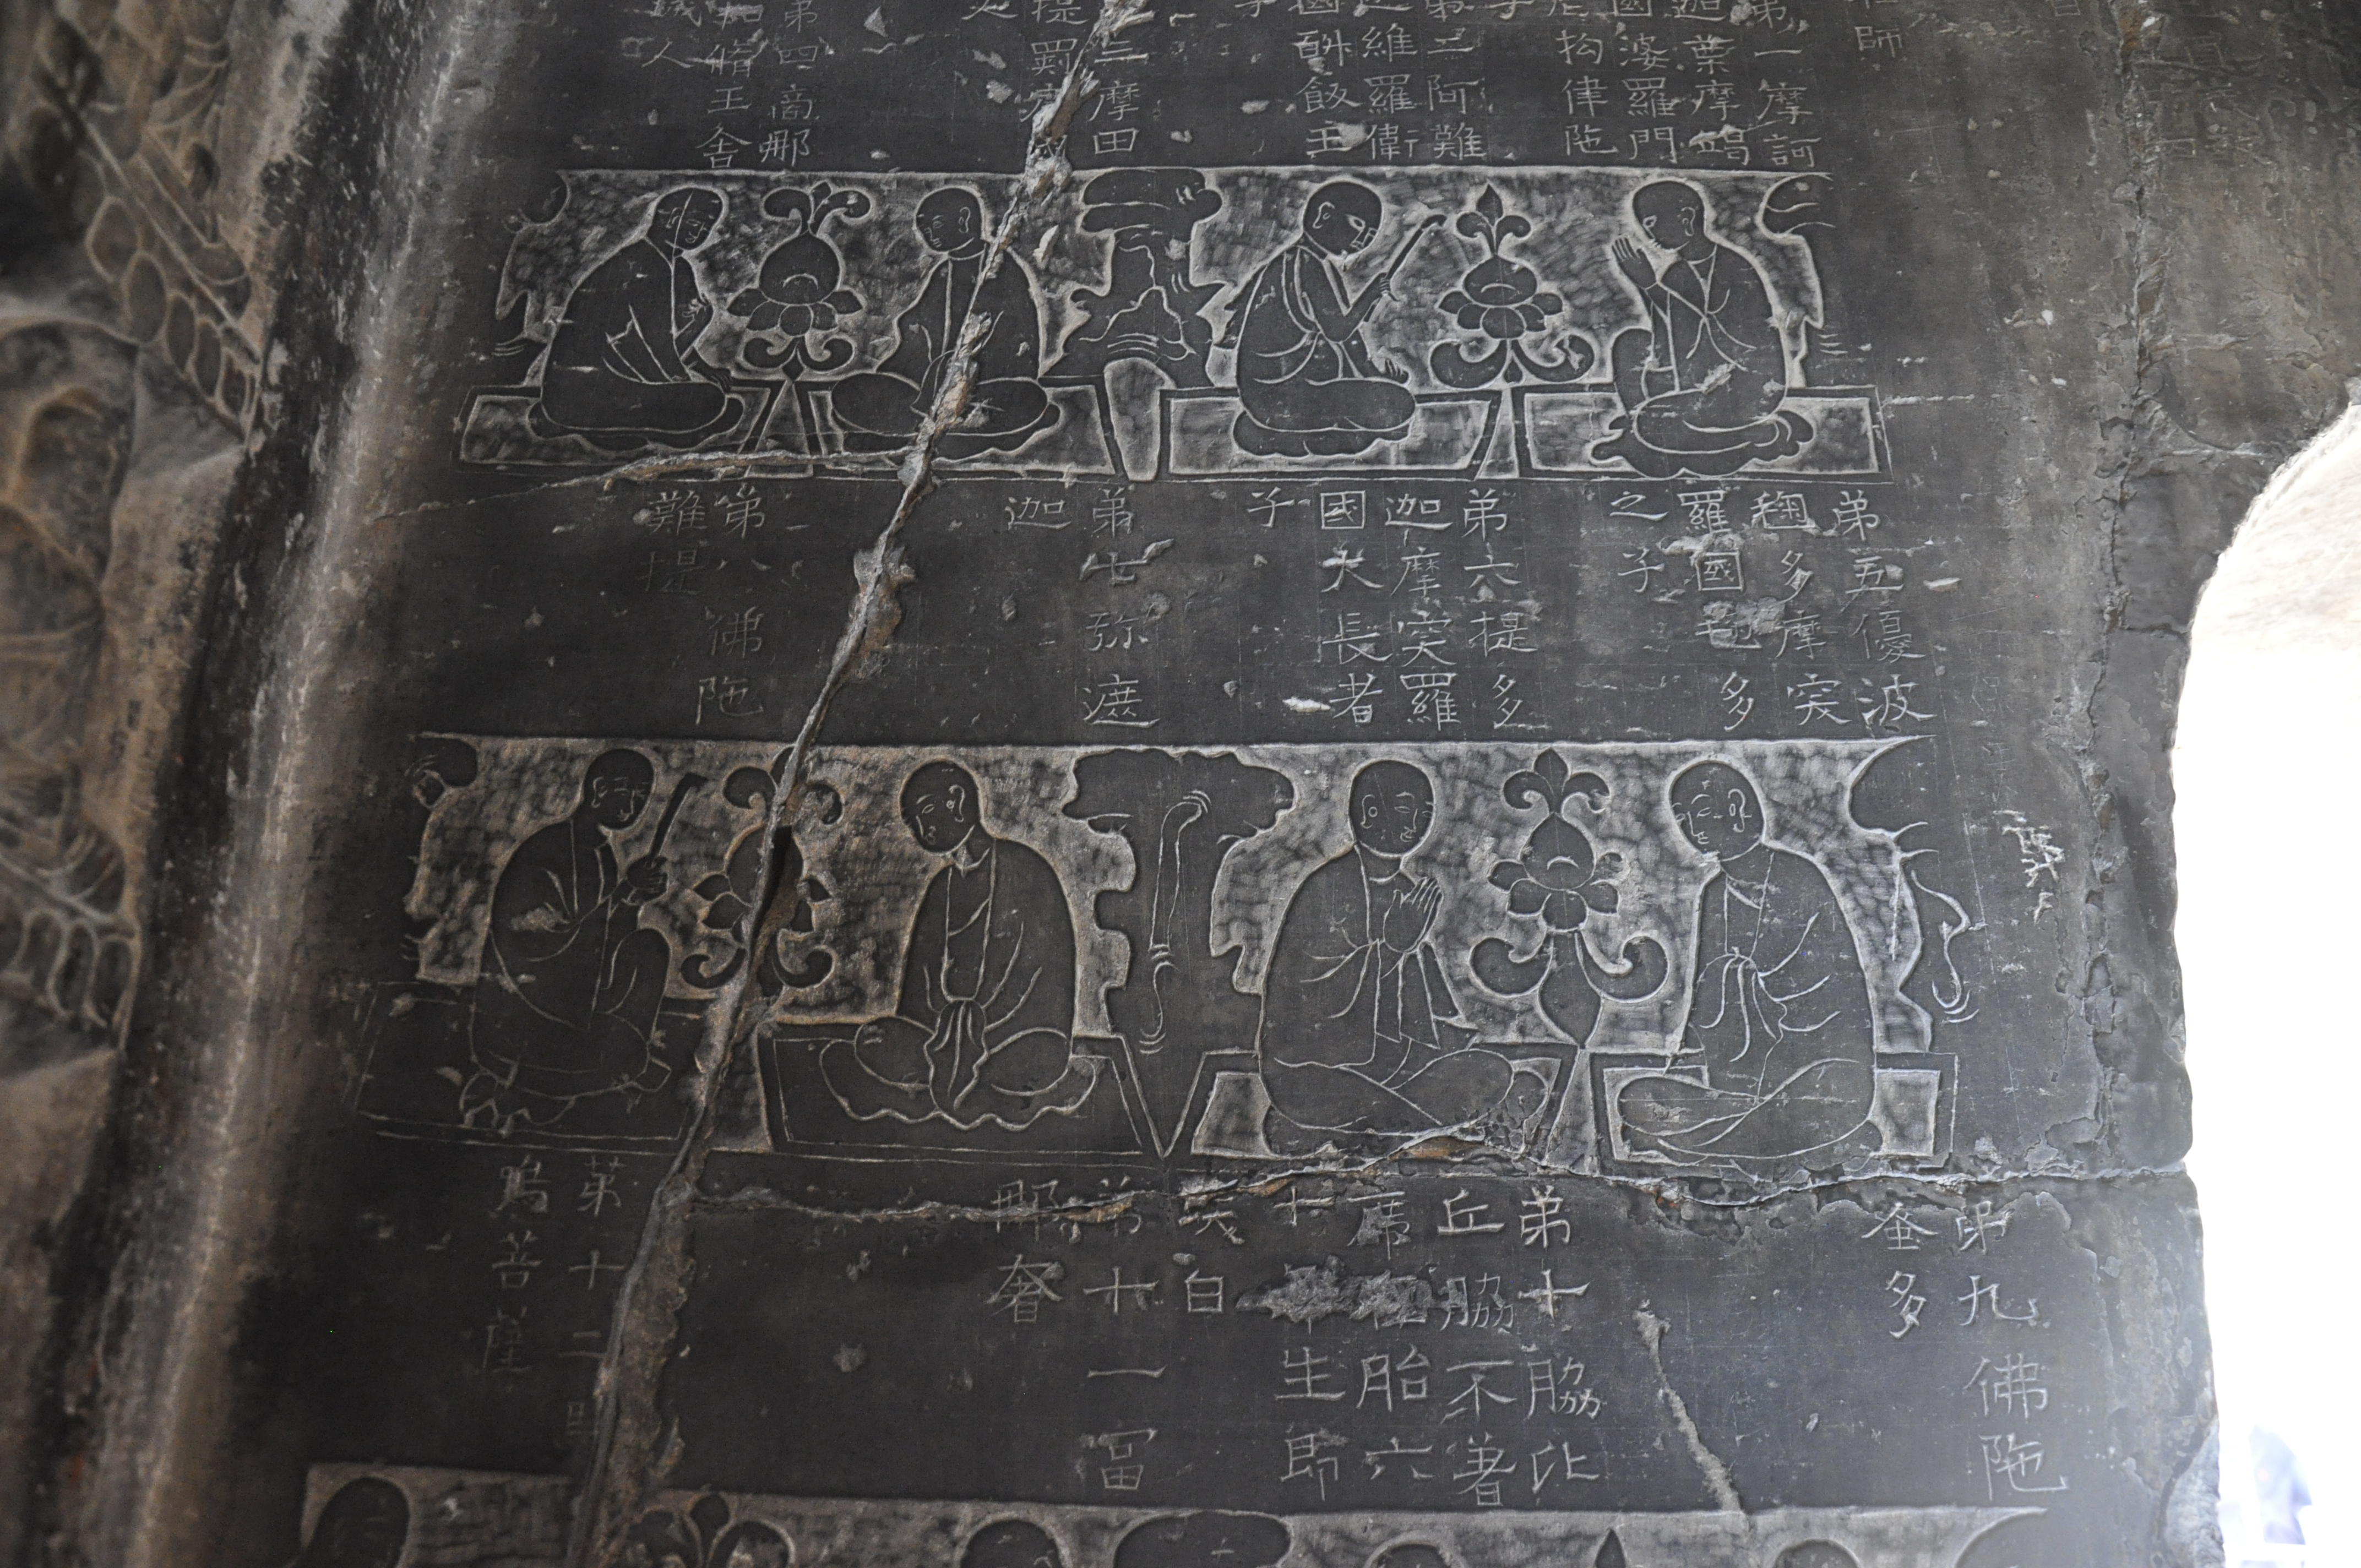 第一摩訶
迦葉摩竭
國婆羅門
尼拘律陁
第二阿難
迦維羅衛
國斛飯王
子
三摩田
提罽賓
第四商那
和脩王舍
人
弟五優波
毱多摩突
羅國毱多
之子
弟六提多
迦摩突羅
國大長者
子
弟七弥遮
迦
第八佛陁
難提
弟九佛陁
蜜多
弟十脇比
丘脇不著
席 胎六
十 生即
白
弟十一冨
那奢
第十二馬
鳴菩薩